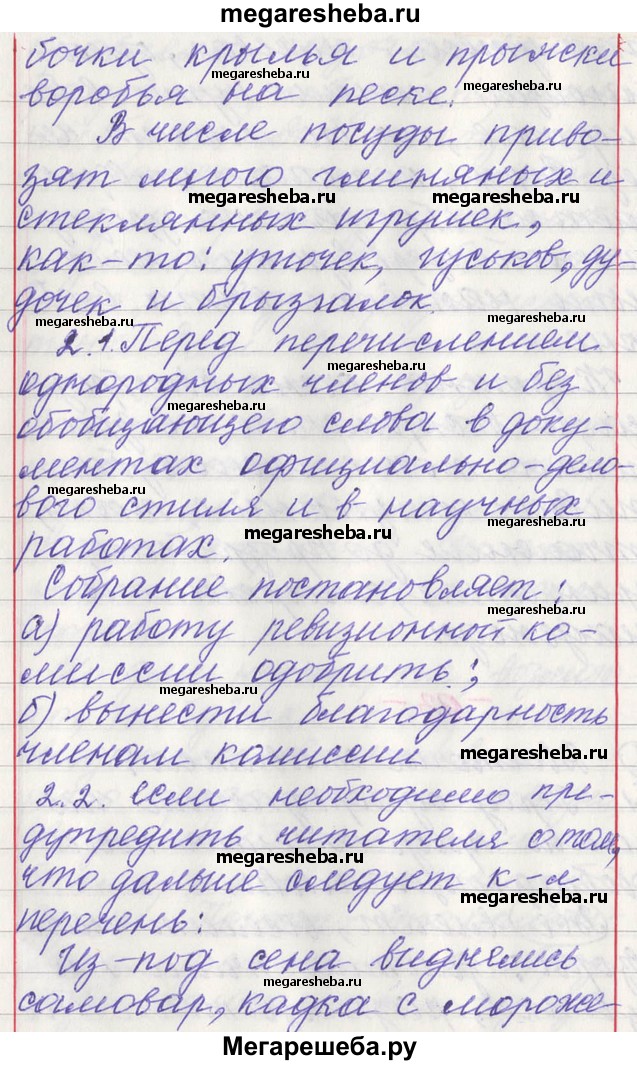 megaresheba.ru
бочки крылья и прыжски
megaresheba.ru
воробья на песке.
В числе посуды приво-
зят много глиняных и
megaresheba.ru megaresheba.ru
стеклянных игрушек,
как-то: уточек, гуськов, ду-
дочек и брызгалок.
megaresheba.ru megaresheba.ru
2.1. Перед перечислением
однородных членов и без
megaresheba.ru
обобщающего слова в доку-
ментах официально-дело-
megaresheba.ru
вого стиля и в научных
megaresheba.ru megaresheba.ru
работах.
Собрание постановляет:
megaresheba.ru
а) работу ревизионной ко-
миссии одобрить;
megaresheba.ru
б) вынести благодарность
членам комиссии
megaresheba.ru
2.2. если необходимо пре-
дупредить читателя о том,
megaresheba.ru
что дальше следует к-л
megaresheba.ru
перечень:
Из-под сена виднелись
megaresheba.ru megaresheba.ru
самовар, кадка с мороже-
Мегарешеба.ру